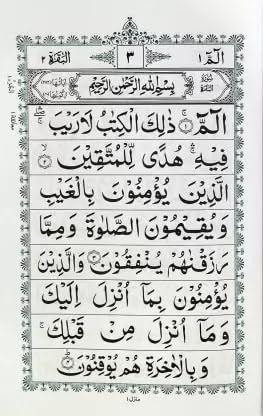 الٓمّٓ ١ ٣ البقرة ٢
سورة البقرة بِسْمِ اللهِ الرَّحْمٰنِ الرَّحِيْمِ
الٓمّٓ ۚ ۝١ ذٰلِكَ الْكِتٰبُ لَا رَيْبَ
فِيْهِ ۛ هُدًى لِّلْمُتَّقِيْنَ ۝٢
الَّذِيْنَ يُؤْمِنُوْنَ بِالْغَيْبِ
وَيُقِيْمُوْنَ الصَّلٰوةَ وَمِمَّا
رَزَقْنٰهُمْ يُنْفِقُوْنَ ۝٣ وَالَّذِيْنَ
يُؤْمِنُوْنَ بِمَآ اُنْزِلَ اِلَيْكَ
وَمَآ اُنْزِلَ مِنْ قَبْلِكَ ۚ
وَبِالْاٰخِرَةِ هُمْ يُوْقِنُوْنَ ۝٤
منزل ١